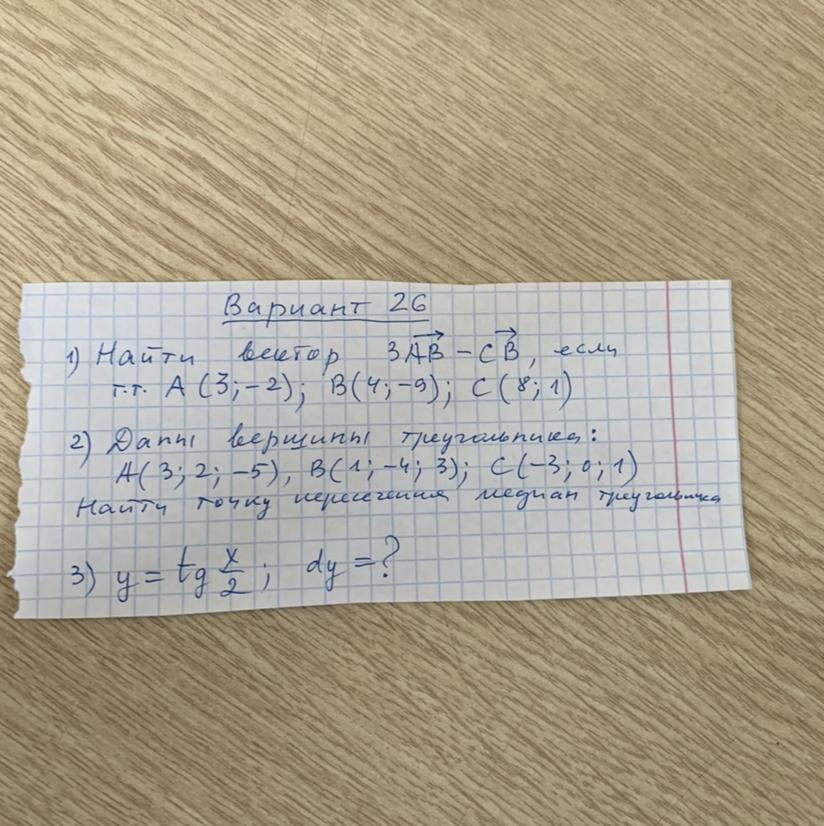 Вариант 26
1) Найти вектор 3AB→ - CB→, если
т.т. A (3; -2); B(4; -9); C (8; 1)
2) Даны вершины треугольника:
A(3; 2; -5), B(1; -4; 3); C(-3; 0; 1)
Найти точку пересечения медиан треугольника
3) y = tg x/2; dy = ?